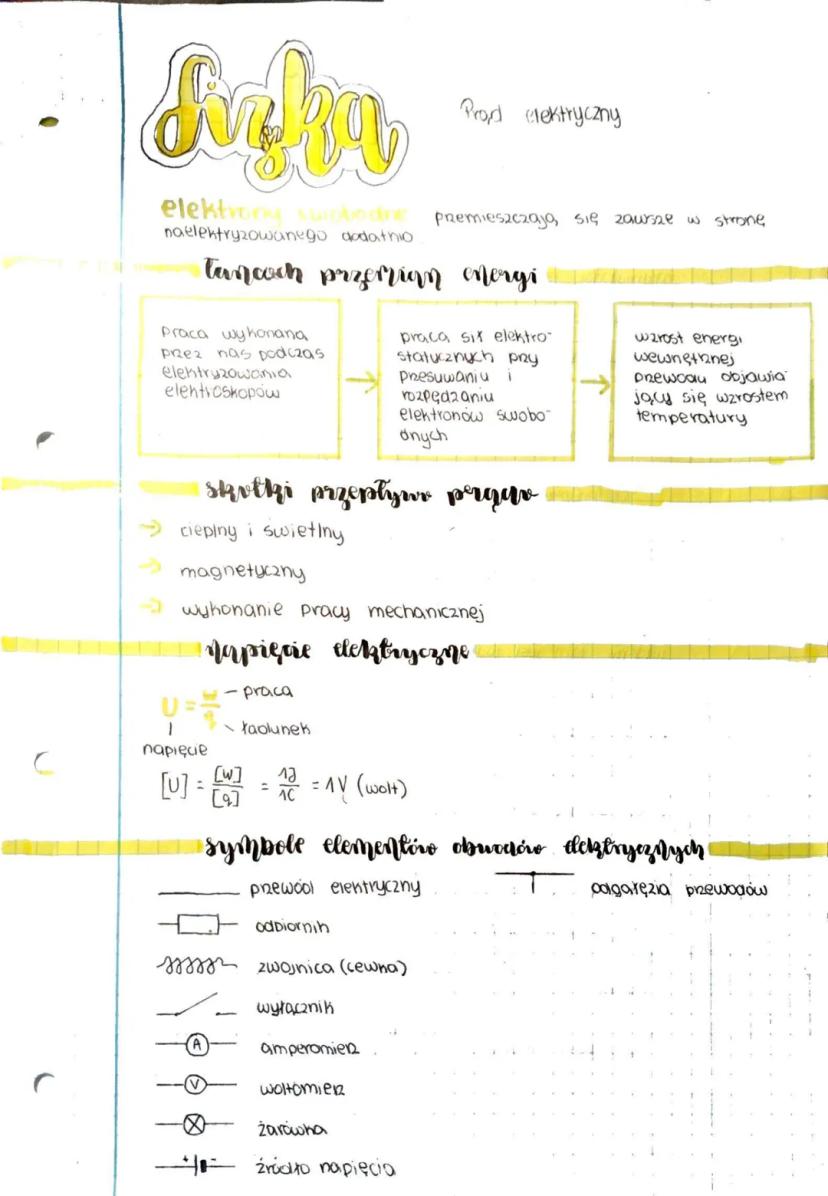 fizyka
Prąd elektryczny
elektrony swobodne przemieszczają się zawsze w stronę
naelektryzowanego dodatnio
łańcuch przemian energi
praca wykonana
przez nas podczas
elektryzowania
elektroskopów
praca sił elektro-
statycznych przy
przesuwaniu i
rozpędzaniu
elektronów swobo-
dnych
wzrost energi
wewnętrznej
przewodu objawia
jący się wzrostem
temperatury
skutki przepływu prądu
cieplny i świetlny
magnetyczny
wykonanie pracy mechanicznej
napięcie elektryczne
U = W/q
praca
ładunek
napięcie
[U] = [W]/[q] = 1J/1C = 1V (wolt)
symbole elementów obwodów elektrycznych
przewód elektryczny
podgałęzia przewodów
odbiornik
zwojnica (cewka)
wyłącznik
A amperomierz
V woltomierz
żarówka
+ - źródło napięcia